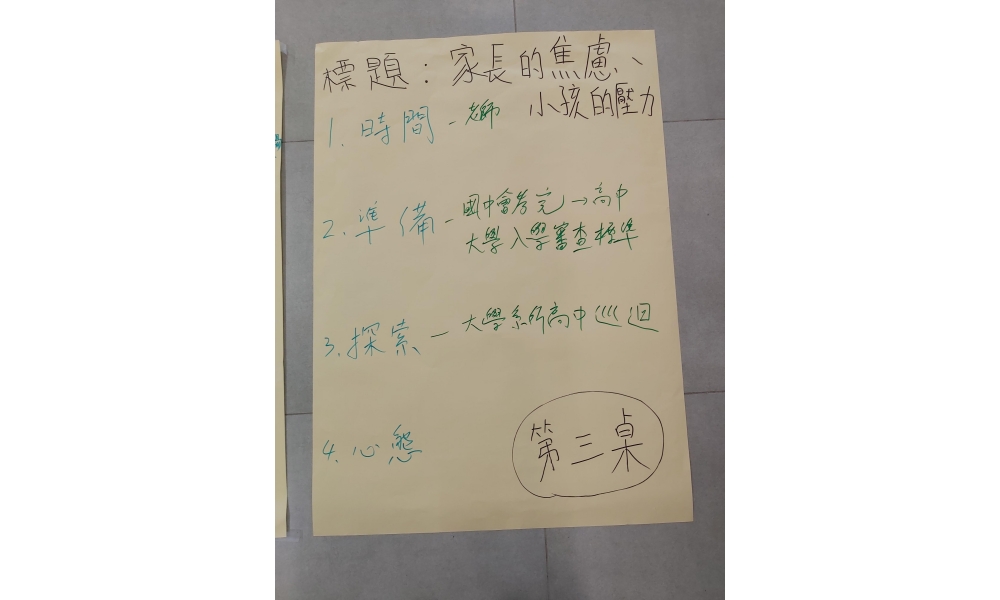 標題：家長的焦慮、
小孩的壓力
1. 時間 - 老師
2. 準備 - 國中會考完→高中
大學入學審查標準
3. 探索 - 大學系所高中巡迴
4. 心態
第三桌